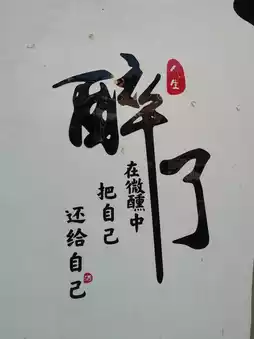 醉了
人生
在微醺中
把自己
还给自己